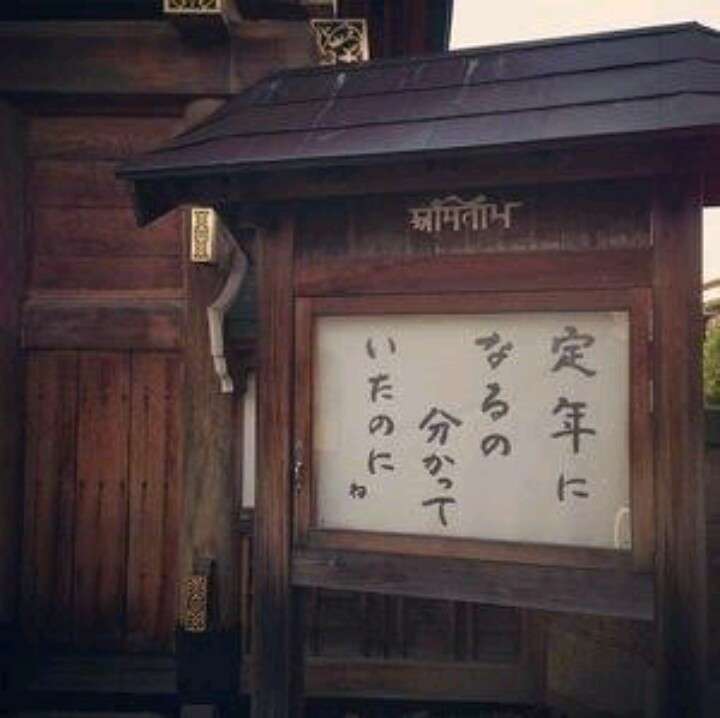 अमिताभ
定年に
なるの
分かって
いたのにね